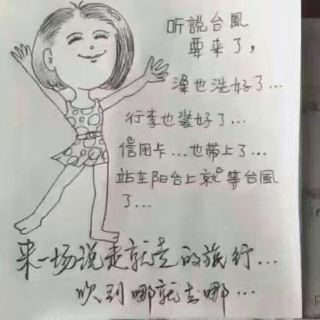 听説台風
要来了，
澡也洗好了…
行李也装好了…
信用卡…也帶上了…
站在阳台上就等台風
了…
来一场说走就走的旅行…
吹到哪就去哪…